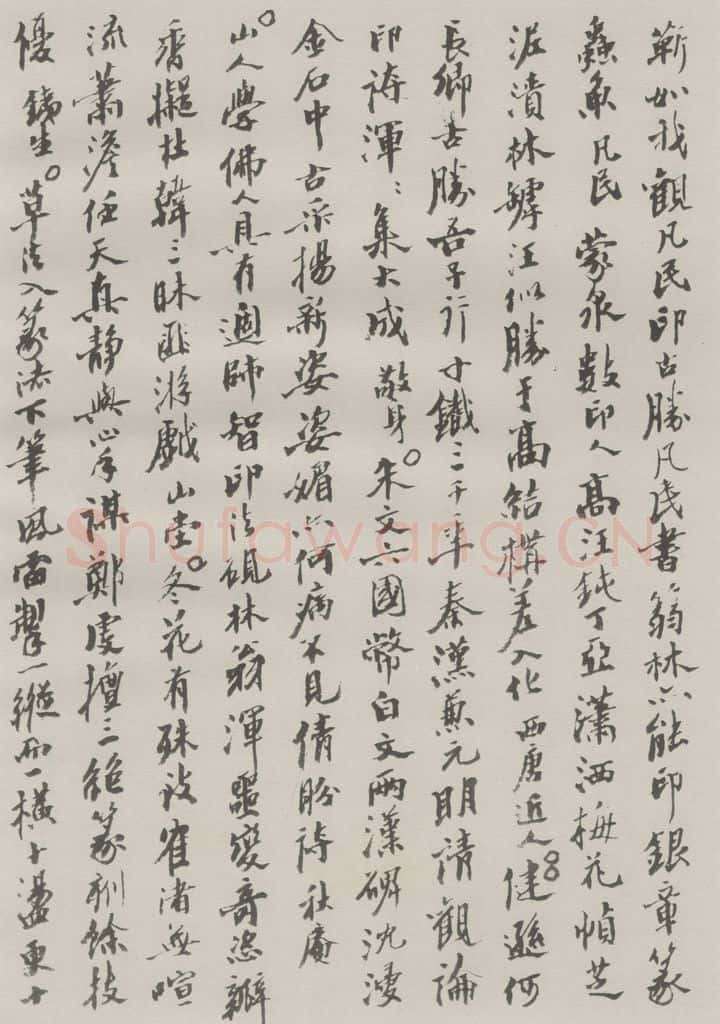 嶄如我觀凡民印古勝凡民書翁林亦能印銀章篆
蟲魚凡民 蒙泉數印人高汪鈍丁亞瀟洒梅花幀芝
泥漬林罅汪似勝于高結構差入化西唐近人健遜何
長卿古勝吾子行寸鐵三千年秦漢兼元明請觀論
印詩渾渾集大成敬身朱文六國幣白文兩漢碑沈凄
金石中古采揚新姿姿媚亦何病不見倩盼詩秋庵
山人學佛人具有過師智印法硯林翁渾噩變奇恣瓣
香擬杜韓三昧匪游戲山堂冬花有殊致雀渚無喧
流蕭澹任天真靜與心手謀鄭虔擅三絕篆刻餘技
優鐵生草法入篆法下筆風雷掣一縱而一橫十盪更十
Shufawang.CN